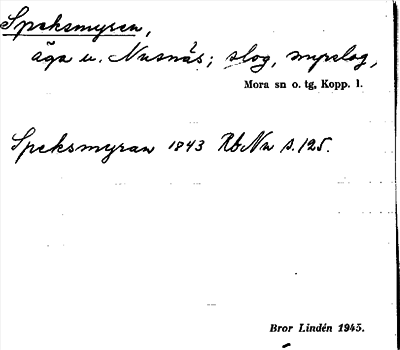 Speksmyren,
äga u. Nusnäs; slog, myrslog,
Mora sn o. tg, Kopp. l.
Speksmyran 1843 RbNu s. 125.
Bror Lindén 1945.